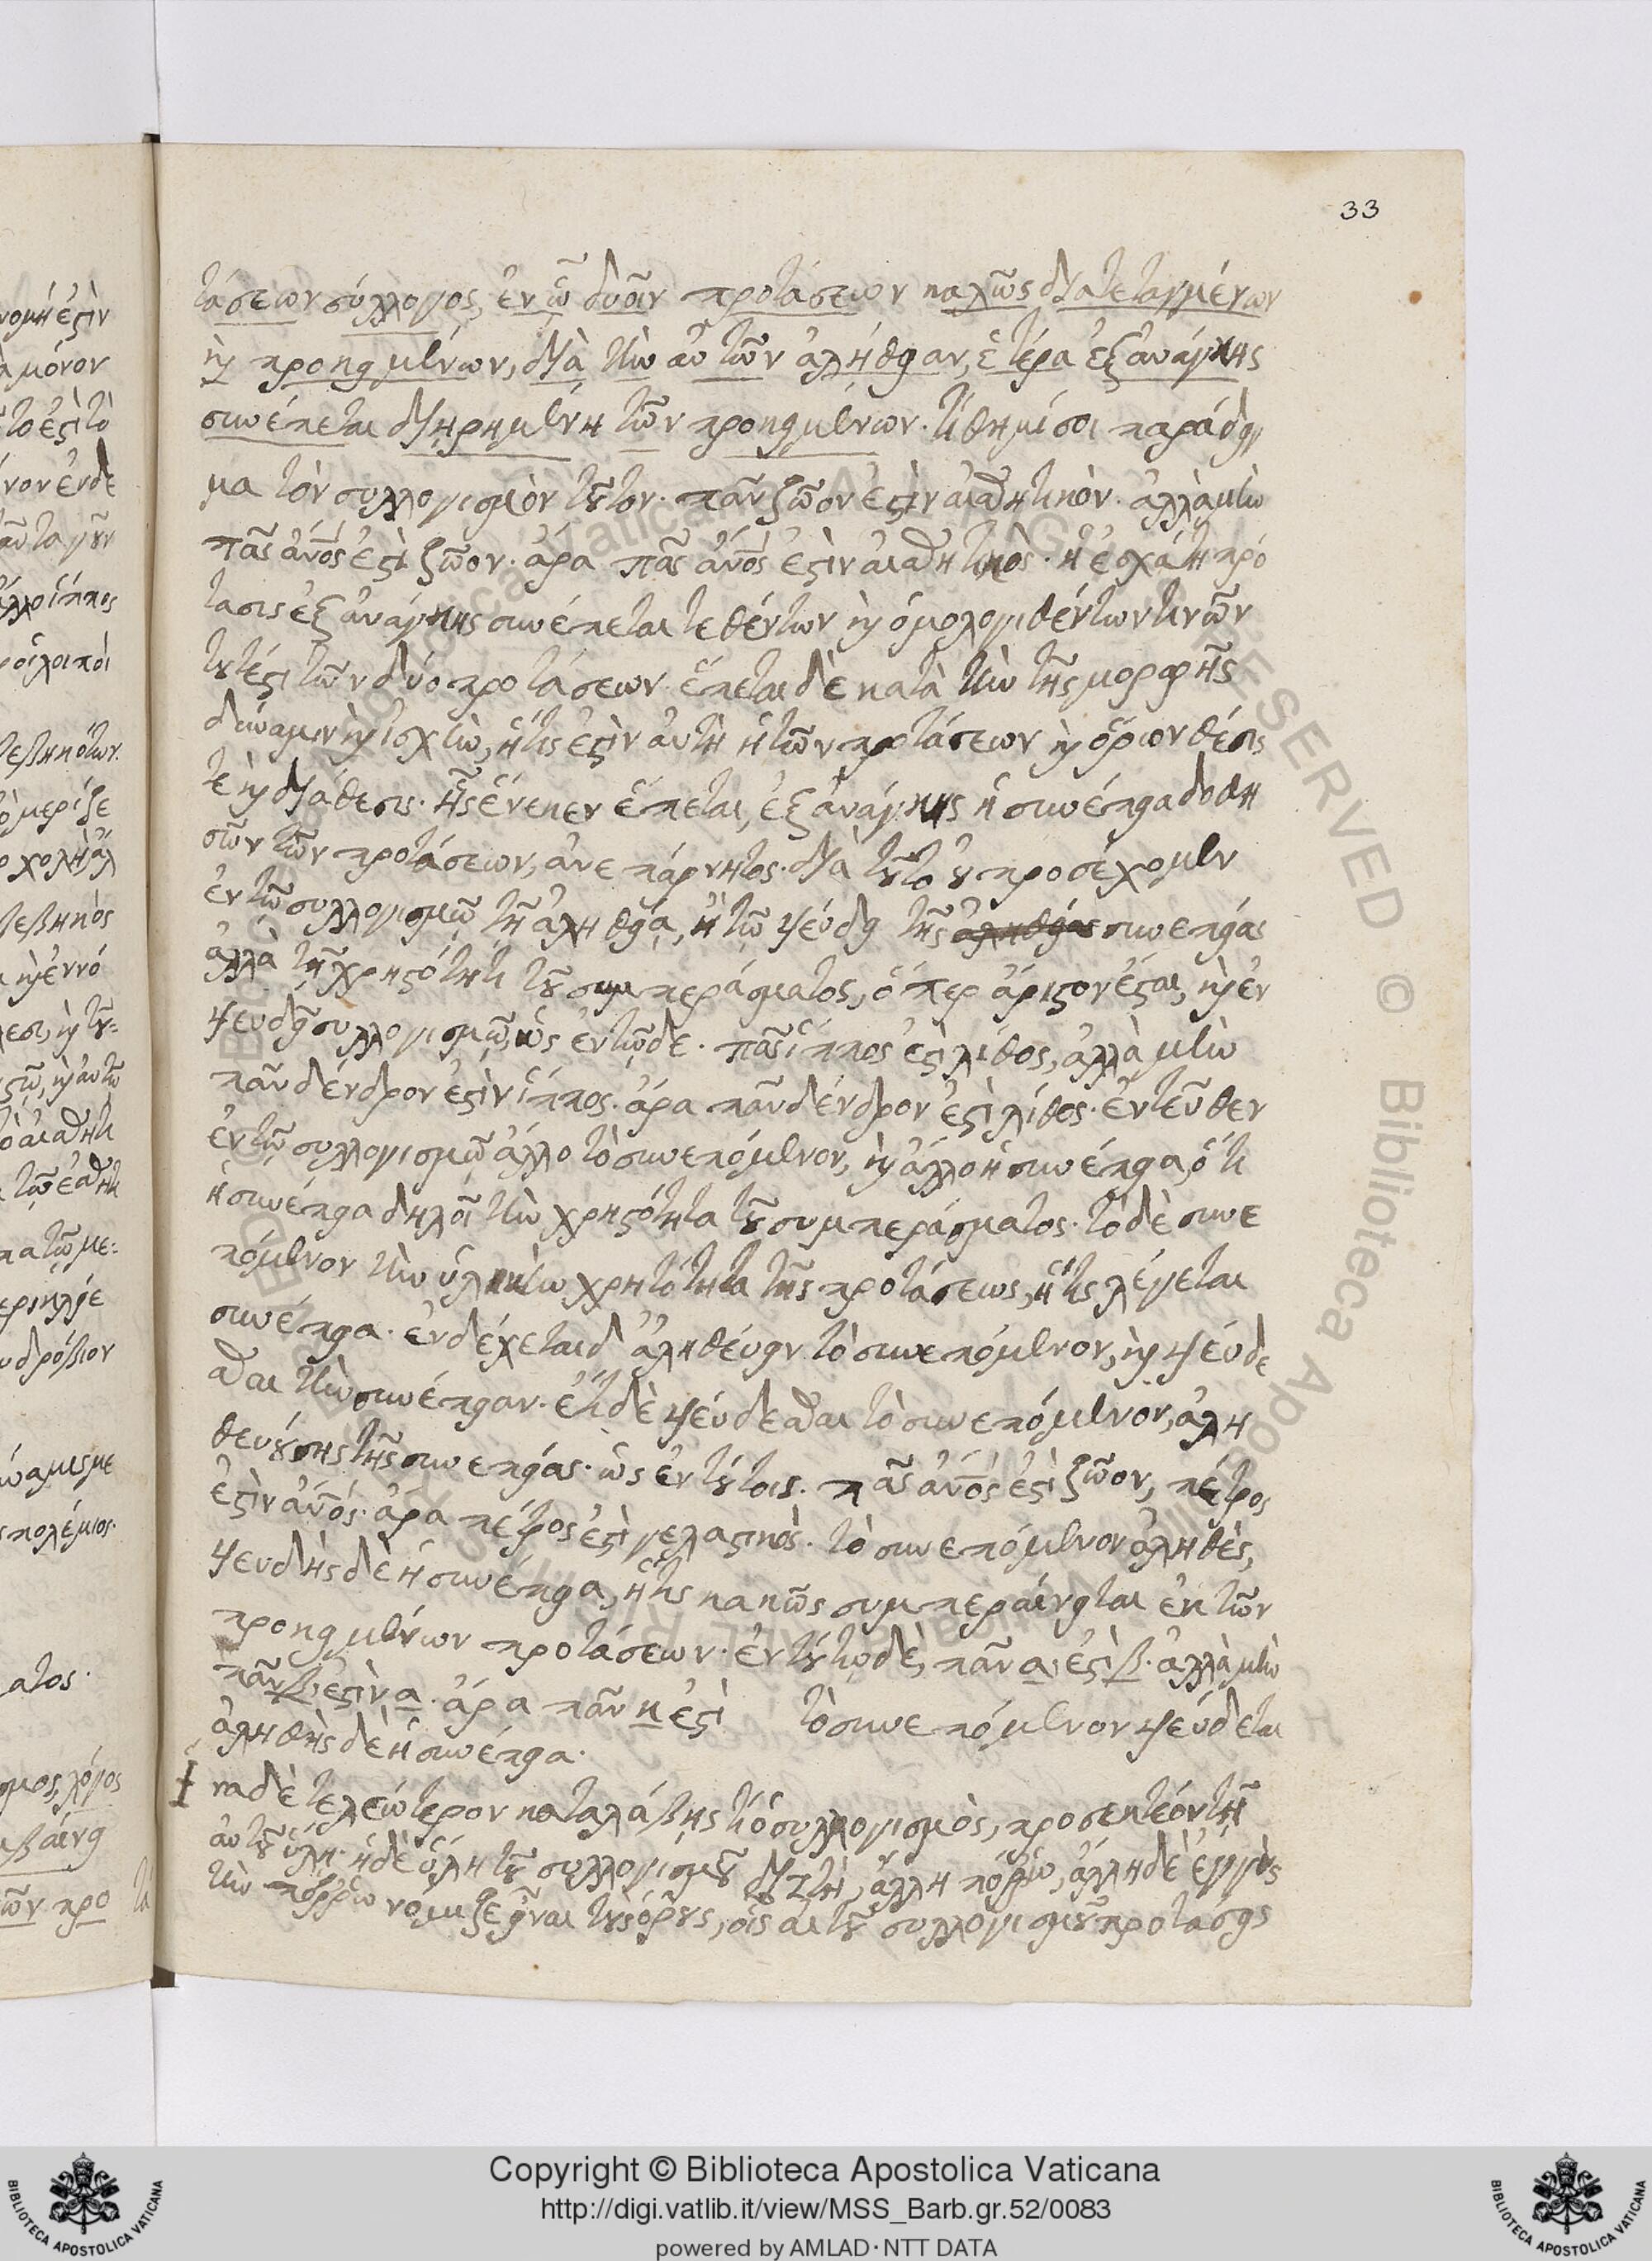 33
τάσεων σύλλογος, ἐν ᾧ δυοῖν προτάσεων καλῶς διατεταγμένων
καὶ προκειμένων, διὰ τὴν αὐτῶν ἀλήθειαν, ἑτέρα ἐξ ἀνάγκης
συνέπεται διῃρημένη τῶν προκειμένων. τίθημί σοι παράδειγ
μα τὸν συλλογισμὸν τοῦτον. πᾶν ζῶον ἐστὶν αἰσθητικόν. ἀλλὰ μὴν
πᾶς ἄνος ἐστὶ ζῶον. ἄρα πᾶς ἄνος ἐστὶν αἰσθητικὸς. ἡ ἐσχάτη πρό
τασις ἐξ ἀνάγκης συνέπεται τεθέντων καὶ ὁμολογιθέντων τινῶν
τουτέστι τῶν δύο προτάσεων. ἕπεται δὲ κατὰ τὴν τῆς μορφῆς
δύναμιν καὶ ἰσχὺν, ἥτις ἐστὶν αὐτὴ ἡ τῶν προτάσεων καὶ ὅρων θέσις
τε καὶ διάθεσις. ἧς ἕνεκεν ἕπεται, ἐξ ἀνάγκης ἡ συνέπεια δοθει
σῶν τῶν προτάσεων, ἀνεπάρνητος. διὰ τοῦτο οὐ προσέχομεν
ἐν τῷ συλλογισμῷ τῇ ἀληθείᾳ, ἢ τῷ ψεύδει τῆς ἀληθείας συνεπείας
ἀλλὰ τῇ χρηστότητι τοῦ συμπεράσματος, ὅπερ ἄριστον ἔσται, καὶ ἐν
ψευδεῖ συλλογισμῷ, ὡς ἐν τῷδε. πᾶς ἵππος ἐστὶ λίθος, ἀλλὰ μὴν
πᾶν δένδρον ἐστὶν ἵππος. ἄρα πᾶν δένδρον ἐστὶ λίθος. ἐντεῦθεν
ἐν τῷ συλλογισμῷ ἄλλο τὸ συνεπόμενον, καὶ ἄλλο ἡ συνέπεια, ὅτι
ἡ συνέπεια δηλοῖ τὴν χρηστότητα τοῦ συμπεράσματος. τὸ δὲ συνε
πόμενον τὴν ὑλικὴν χρητότητα τῆς προτάσεως, ἥτις λέγεται
συνέπεια. ἐνδέχεται δ' ἀληθεύειν τὸ συνεπόμενον, καὶ ψεύδε
σθαι τὴν συνέπειαν. ἔτι δὲ ψεύδεσθαι τὸ συνεπόμενον, ἀλη
θευούσης τῆς συνεπείας. ὡς ἐν τούτοις. πᾶς ἄνος ἐστὶ ζῶον, πέτρος
ἐστὶν ἄνος. ἄρα πέτρος ἐστὶ γελαστικὸς. τὸ συνεπόμενον ἀληθὲς,
ψευδὴς δὲ ἡ συνέπεια, ἥτις κακῶς συμπεραίνεται ἐκ τῶν
προκειμένων προτάσεων. ἐν τούτῳ δὲ, πᾶν α ἐστὶ β. ἀλλὰ μὴν
πᾶν β ἐστὶν α. ἄρα πᾶν κ ἐστὶ τὸ συνεπόμενον ψεύδεται
ἀληθὴς δὲ ἡ συνέπεια.
Ἵνα δὲ τελεώτερον καταλάβης τί ὁ συλλογισμὸς, προσεκτέον τῇ
αὐτοῦ ὕλη. ἡ δὲ ὕλη τοῦ συλλογισμοῦ διττὴ, ἄλλη πόρρω, ἄλλη δὲ ἐγγὺς
τὴν πόρρω νόμιζε εἶναι τοὺς ὅρους, οἷς αἱ τοῦ συλλογισμοῦ προτάσεις